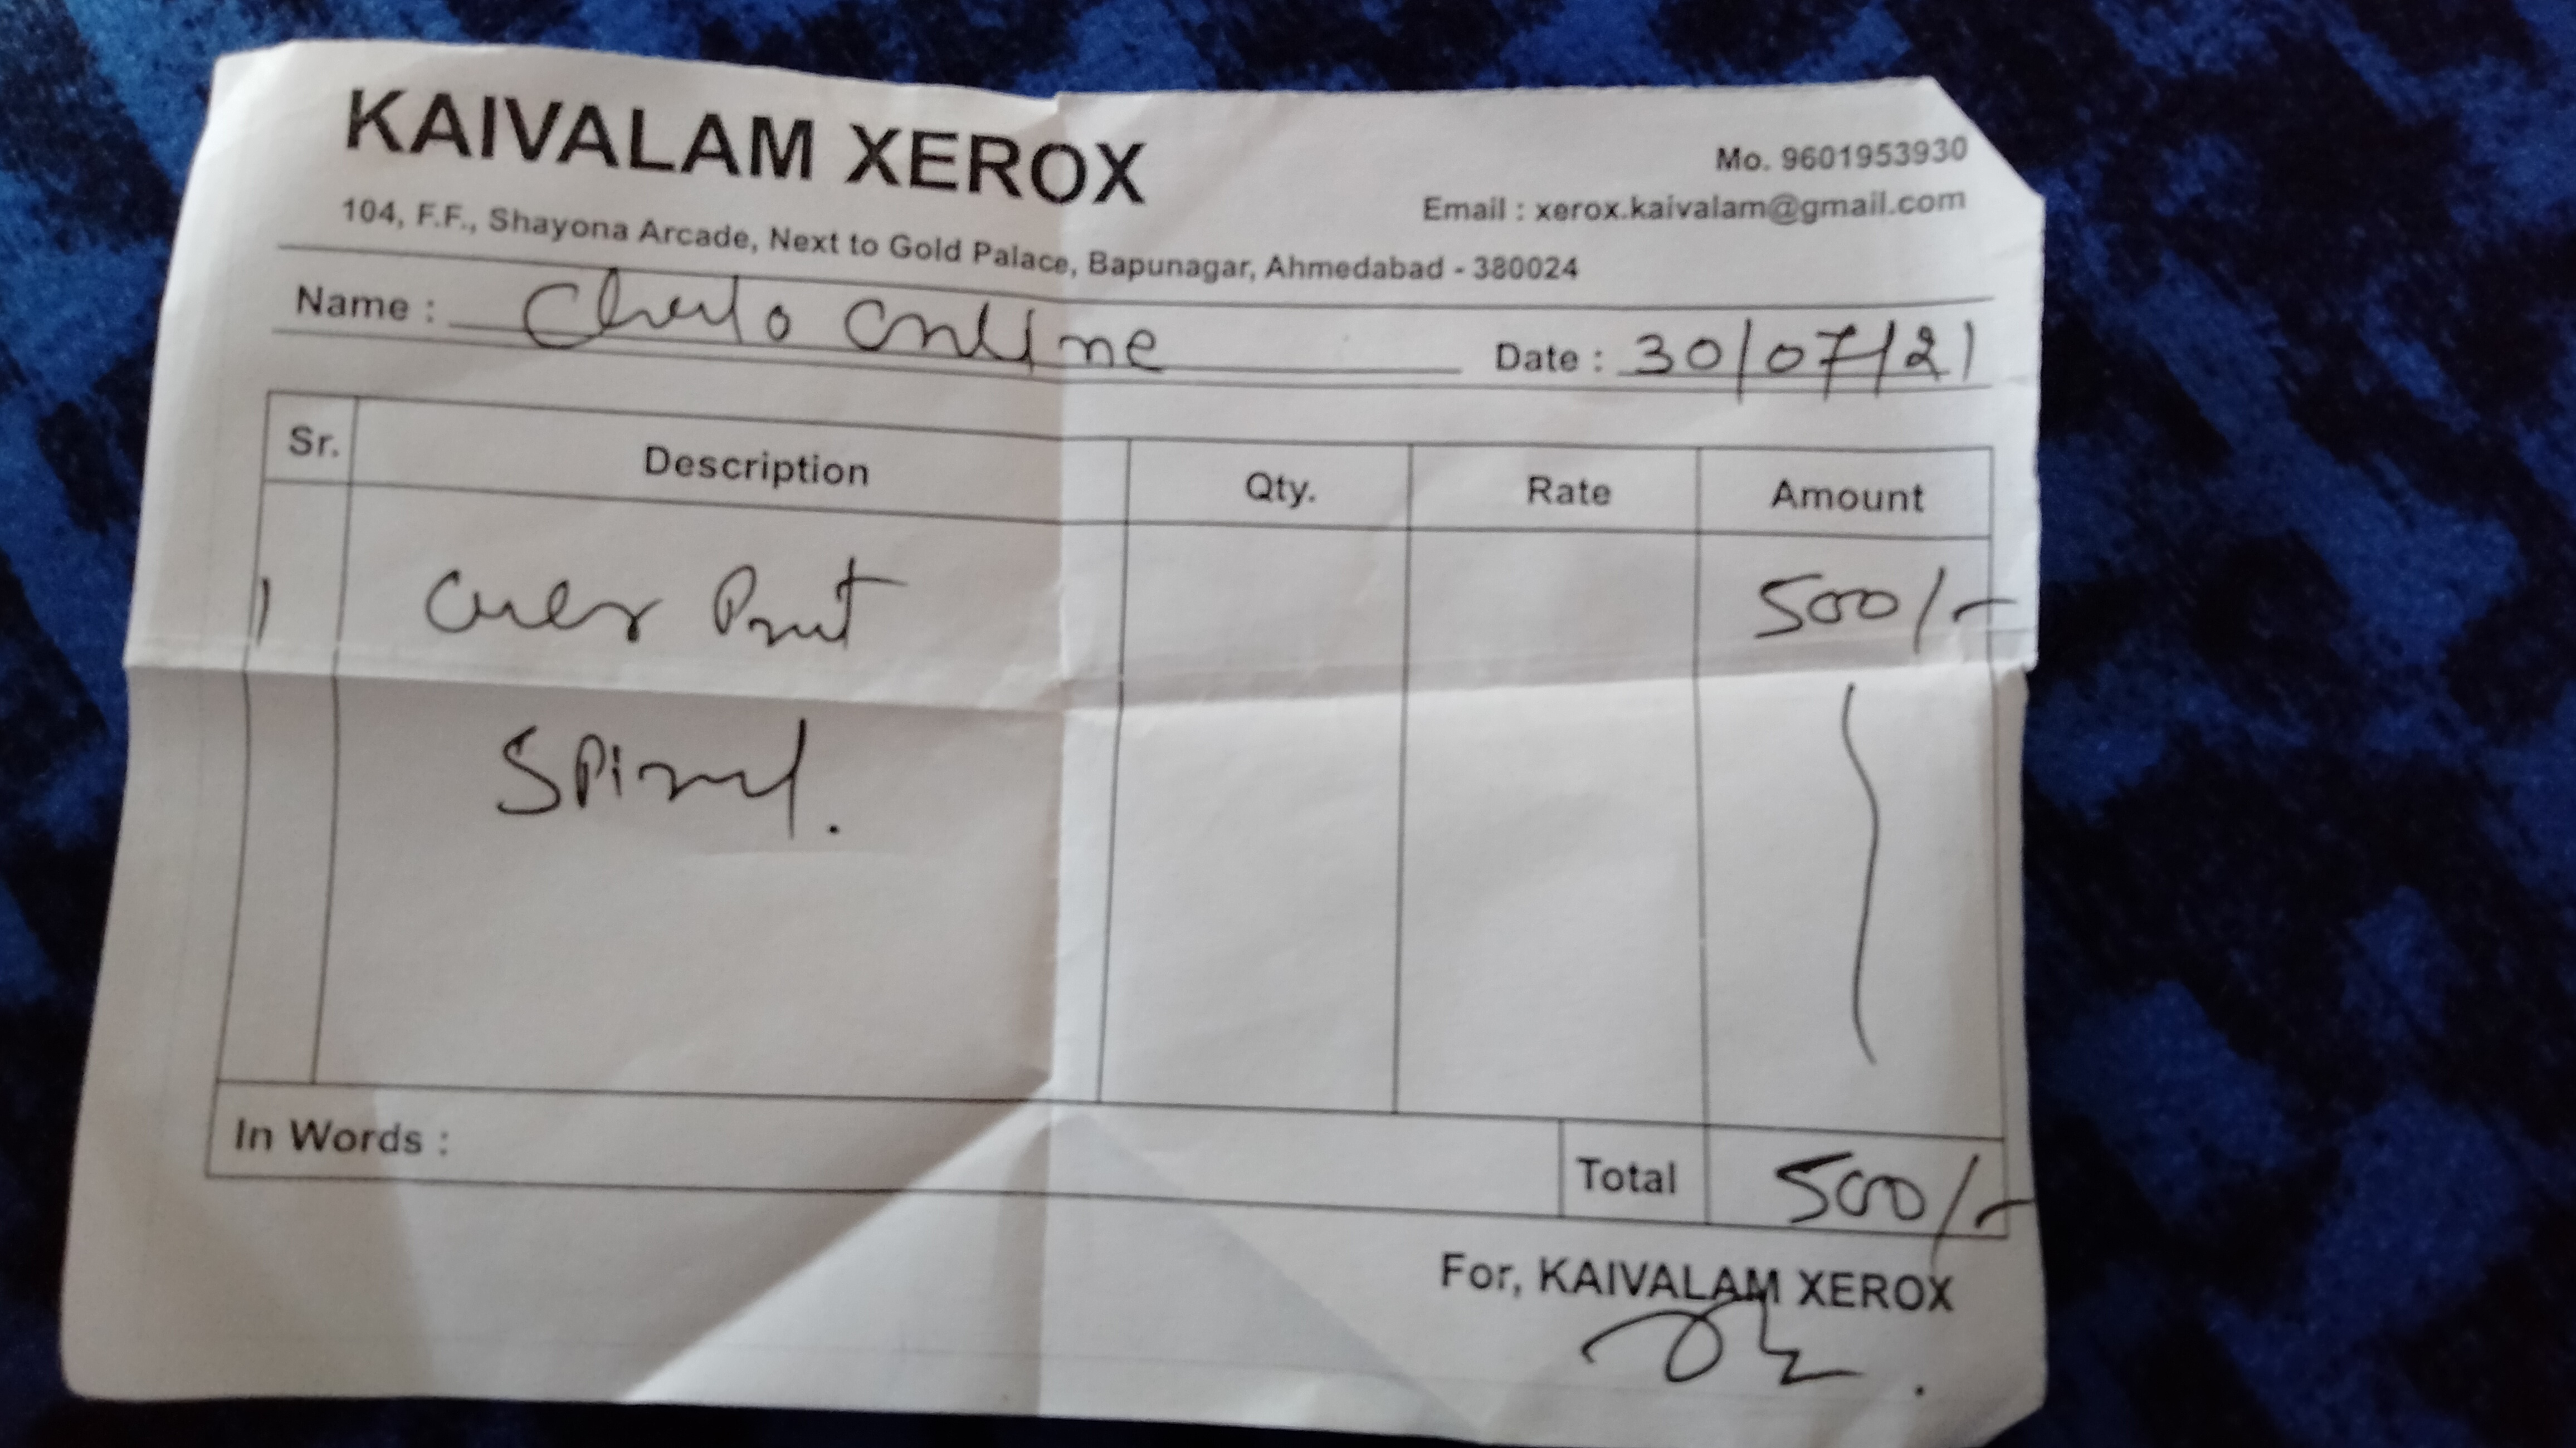 KAIVALAM XEROX
Mo. 9601953930
Email : xerox.kaivalam@gmail.com
104, F.F., Shayona Arcade, Next to Gold Palace, Bapunagar, Ahmedabad - 380024
Name : Chalo Online Date : 30/07/21
Sr. Description Qty. Rate Amount
1 Print 500/-
Spiral.
In Words : Total 500/-
For, KAIVALAM XEROX